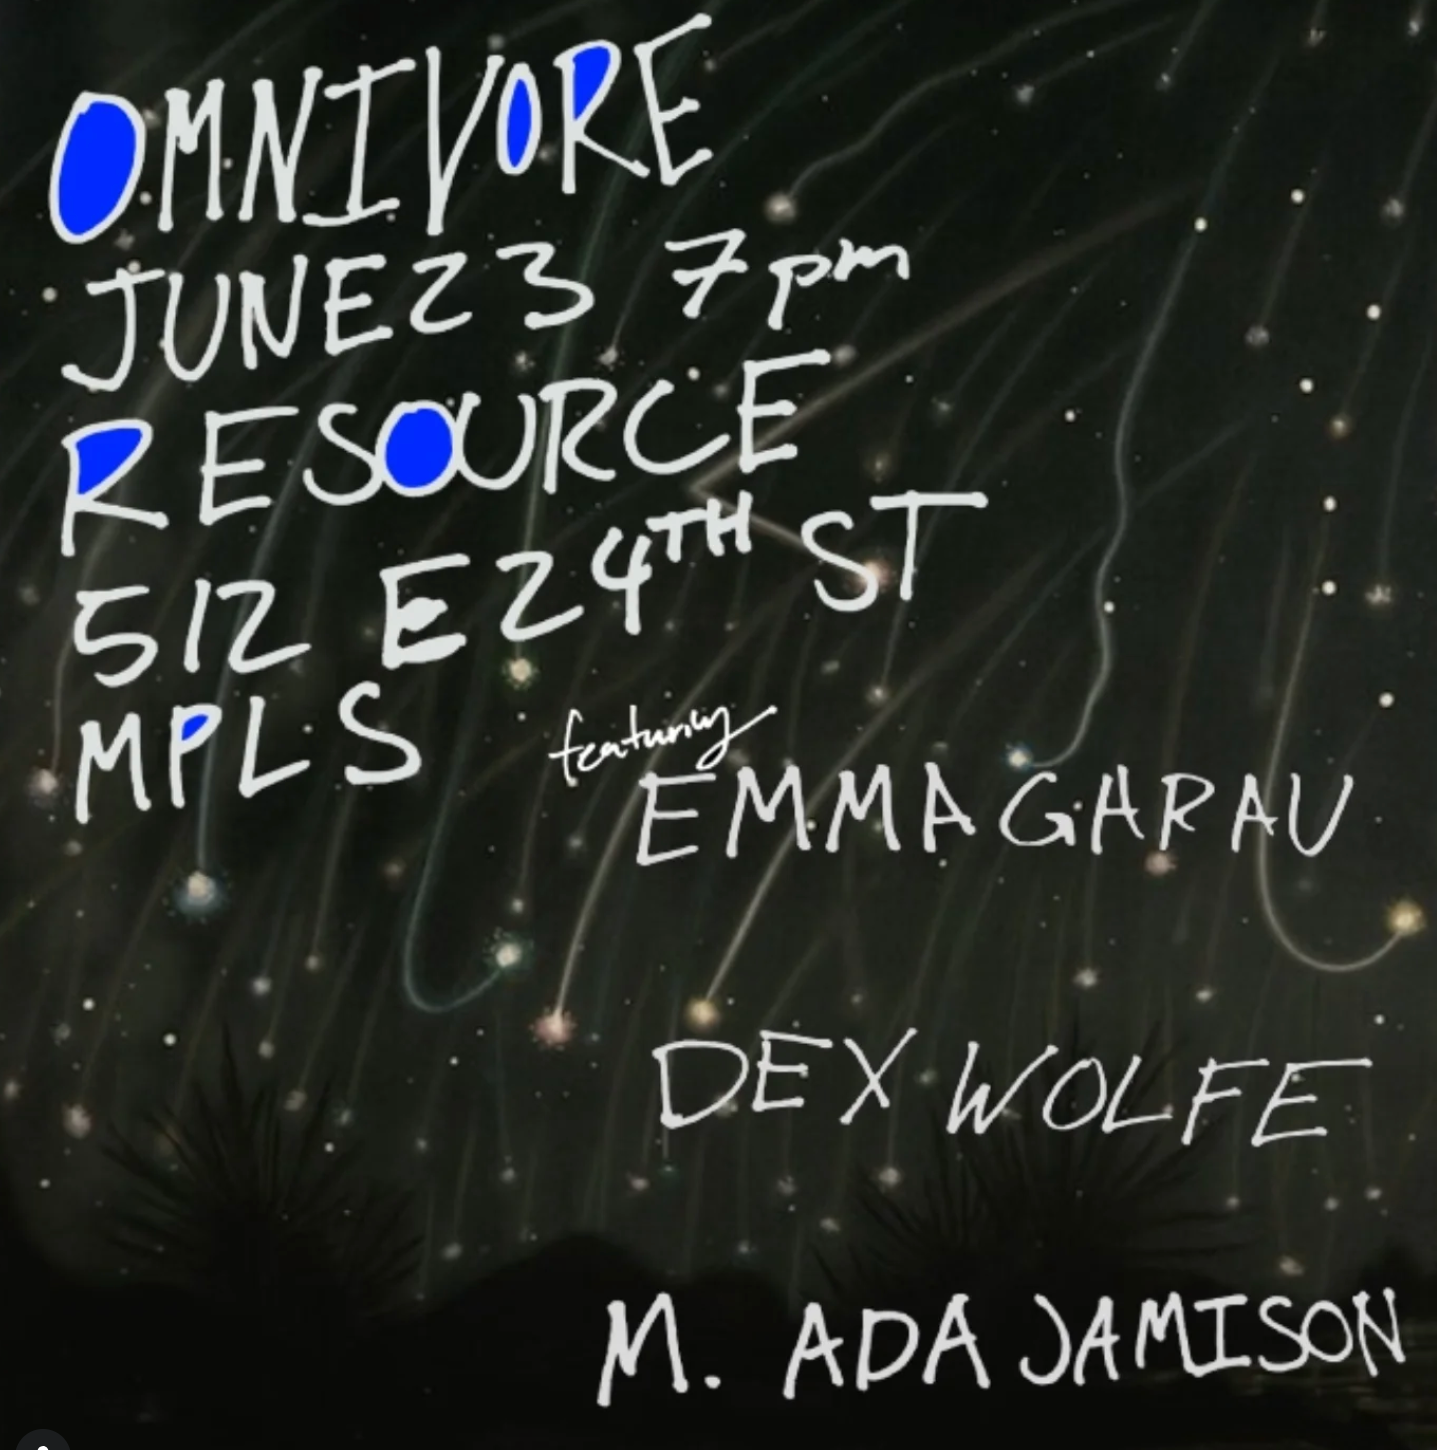 OMNIVORE
JUNE 23 7pm
RESOURCE
512 E 24TH ST
MPLS
featuring
EMMA GARAU
DEX WOLFE
M. ADA JAMISON